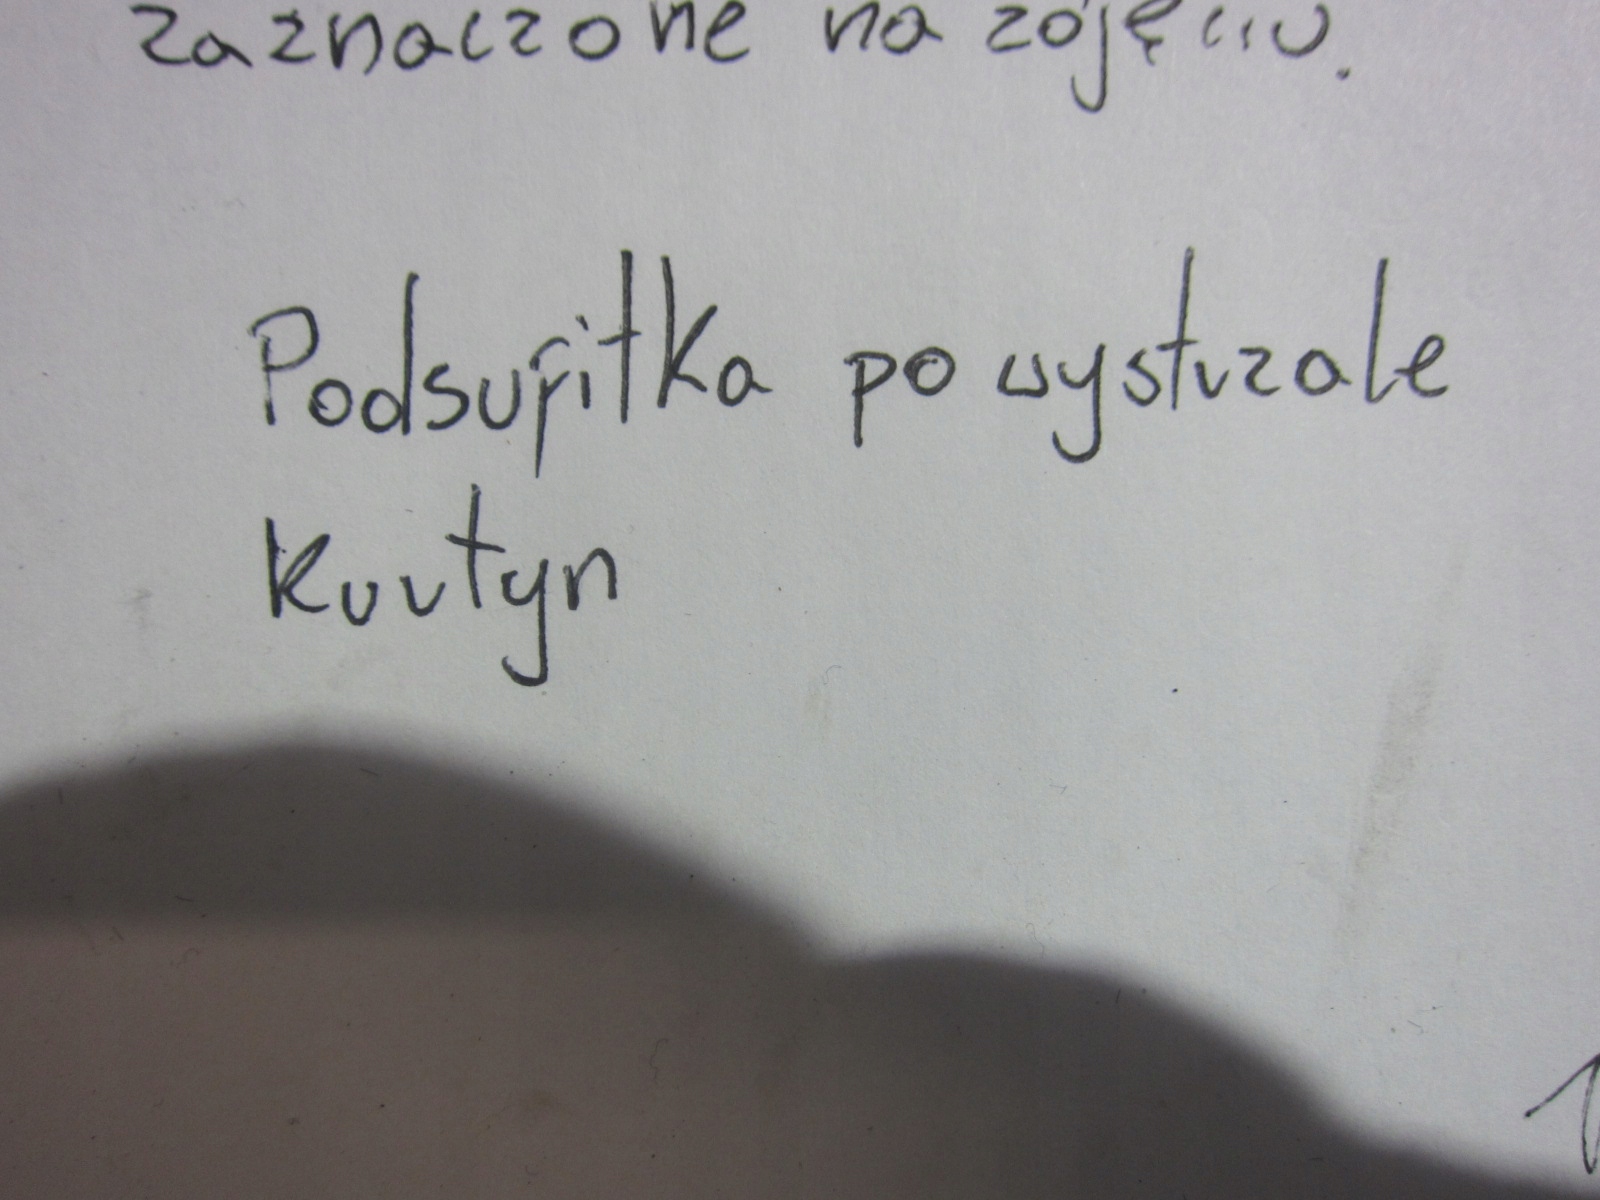 zaznaczone na zdjęciu.
Podsufitka po wystrzale
kurtyn
1